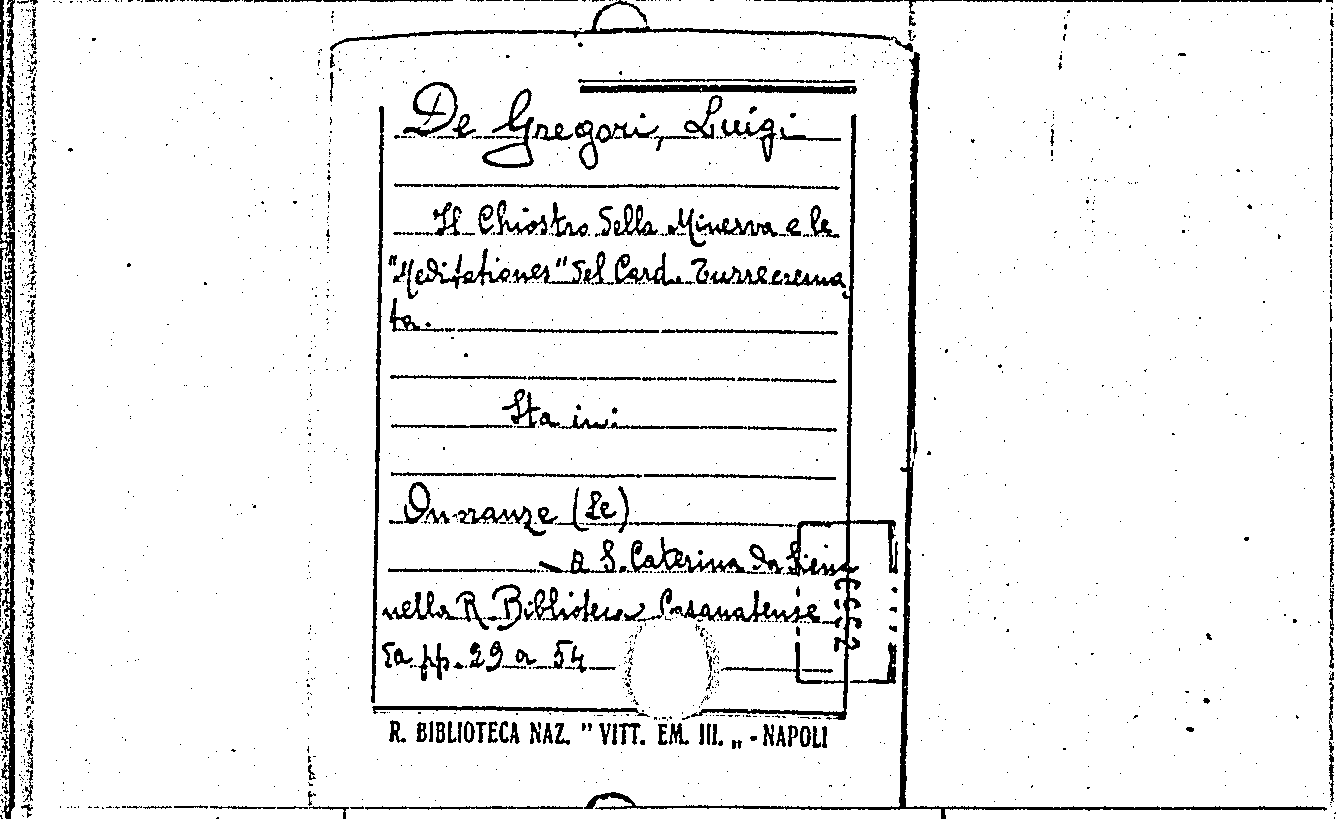 De Gregori, Luigi
Il Chiostro della Minerva e le
"Meditationes" del Card. Turrecrema,
ta.
Sta in:
Onoranze (Le)
— a S. Caterina da Siena
nella R. Biblioteca Casanatense
da pp. 29 a 54
R. BIBLIOTECA NAZ. " VITT. EM. III. „ - NAPOLI